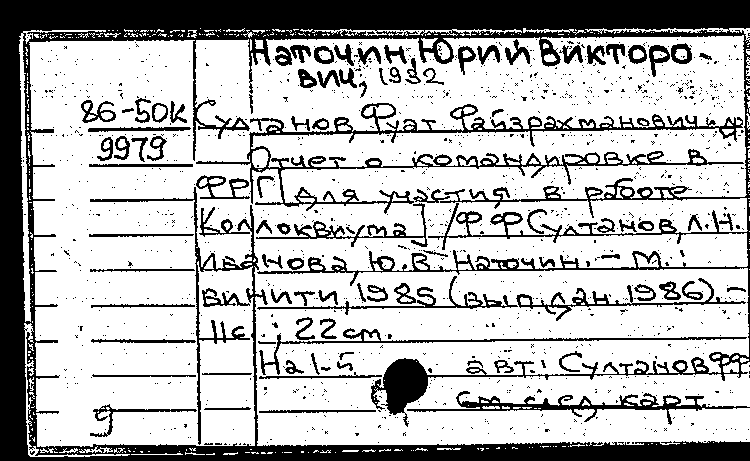 Наточин, Юрий Викторо-
вич, 1932
86-50К Султанов, Фуат Файзрахманович и др.
9979 Отчет о командировке в
ФРГ [для участия в работе
Коллоквиума] / Ф.Ф. Султанов, Л.Н.
Иванова, Ю.В. Наточин. - М.:
ВИНИТИ, 1985 (вып. дан. 1986). -
11 с.; 22 см.
На 1-й авт.: Султанов Ф.Ф.
См. след. карт.
9